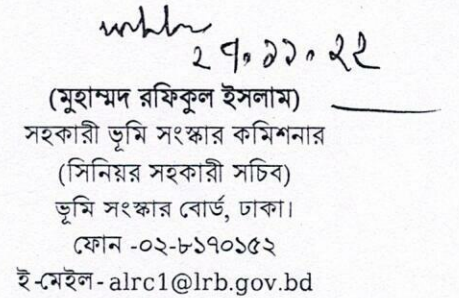 ২৭.১১.২২
(মুহাম্মদ রফিকুল ইসলাম)
সহকারী ভূমি সংস্কার কমিশনার
(সিনিয়র সহকারী সচিব)
ভূমি সংস্কার বোর্ড, ঢাকা।
ফোন -০২-৮১৭০১৫২
ই-মেইল- alrc1@lrb.gov.bd